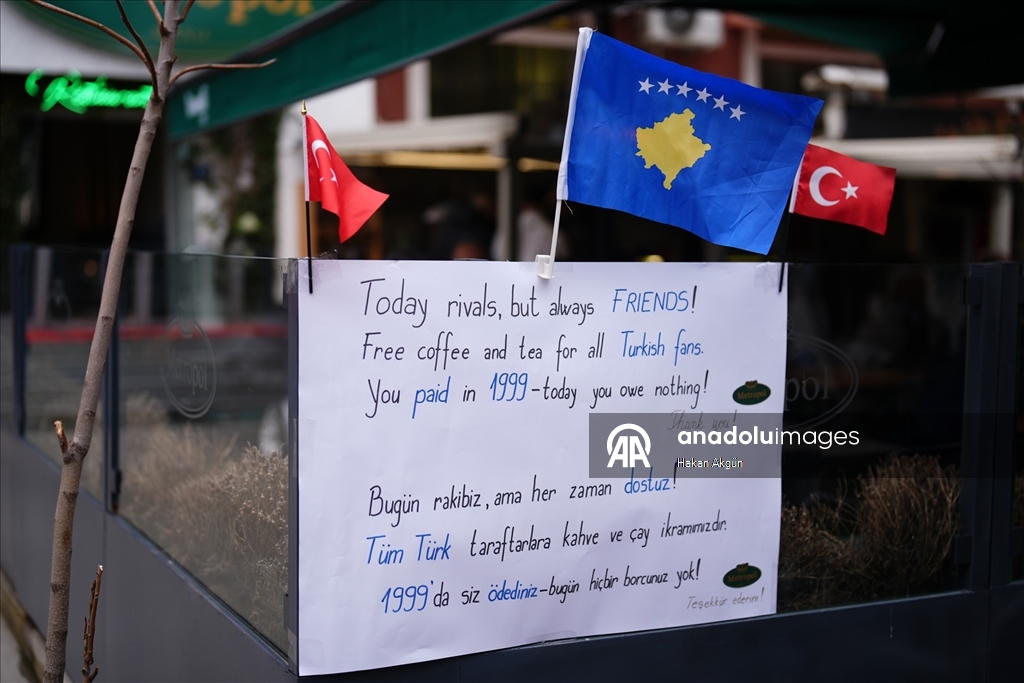 Metropol
Restaurant
Today rivals, but always FRIENDS!
Free coffee and tea for all Turkish fans.
You paid in 1999-today you owe nothing!
Metropol
Thank you!
AA anadoluimages
Hakan Akgün
Bugün rakibiz, ama her zaman dostuz!
Tüm Türk taraftarlara kahve ve çay ikramımızdır.
1999'da siz ödediniz-bugün hiçbir borcunuz yok!
Metropol
Teşekkür ederim!